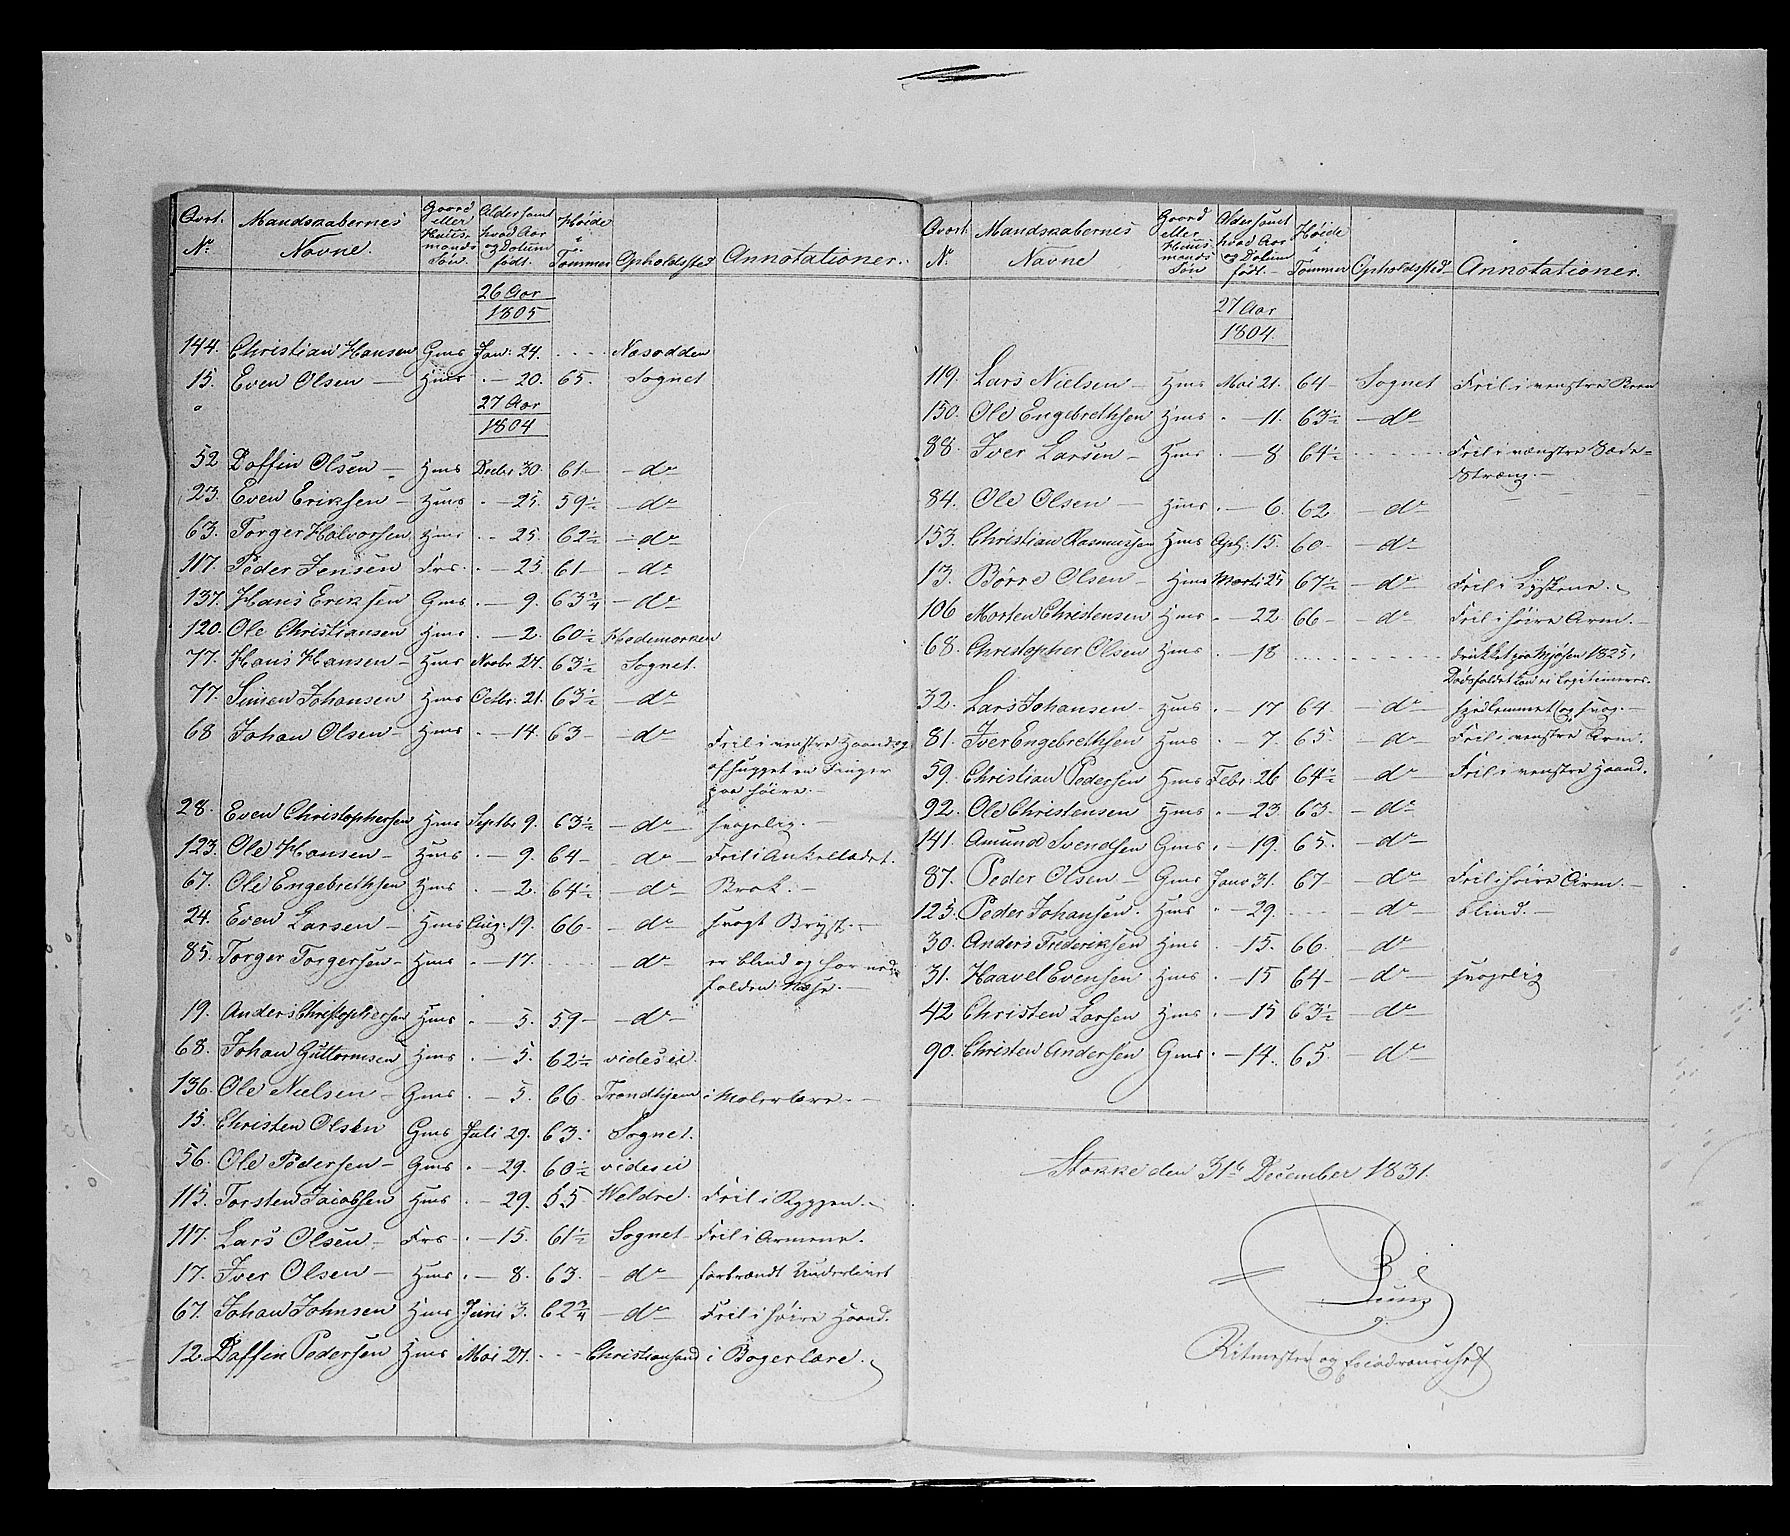 Qvart. Mandskabernes Gaard Alder samt Høide
No. Navne. eller Huus- hvad Aar i
mands og Datum Tommer Opholdssted Annotationer.
Søn. født.
26 Aar
1805
144. Christian Hansen Gms Jan: 24. - - - Næsodden
15. Even Olsen — Hms - — 20. 65. Sognet
27 Aar
1804
52 Daffin Olsen — Hms Decbr 30. 61 — do
23. Even Eriksen — Hms - — 25. 59½ — do
63. Torger Halvorsen Hms - — 25. 62½ — do
117. Peder Jensen Frs. - — 25. 61 — do
137. Hans Eriksen Gms - — 9. 63¾ — do
120. Ole Christiansen Hms - — 2. 60½ Hedemarken
77. Hans Hansen — Hms Novbr 24. 63½ Sognet.
77. Simen Johansen Hms Octbr. 21. 63½ — do
68 Johan Olsen — Hms - — 14. 63 — do Feil i venstre Haand og
afhugget en Finger
paa høire. —
28. Even Christophersen Hms Septbr 9. 63½ — do — svagelig. —
123. Ole Hansen — Hms - — 9. 64 — do — Feil i Ankelledet.
67. Ole Engebrethsen Hms - — 2. 64½ — do Brok. —
24. Even Larsen — Hms Aug: 19. 66 — do svagt Bryst. —
85. Torger Torgersen — Hms - — 17. - - - — do er blind og har
falden Næse. —
19. Anders Christophersen Hms - — 5. 59 — do —
68. Johan Guttormsen Hms - — 5. 62½ vides ei.
136. Ole Nielsen — Gms - — 5. 66 Trondhjem i Malerlære. —
15. Christen Olsen Gms Juli 29. 63. Sognet.
56. Ole Pedersen — Gms - — 29. 60½ vides ei
115. Torsten Jacobsen Hms - — 29. 55 Weldre. Feil i Ryggen. —
117. Lars Olsen — Frs - — 15. 61½ Sognet Feil i Armene.
17. Iver Olsen — Hms - — 8. 63. — do forbrændt Underlivet
67. Johan Johnsen Hms Juni 3. 62¾ — do — Feil i høire Haand.
12. Daffin Pedersen Hms Mai 27. - - - Christiansand i Bagerlære.
Qvart. Mandskabernes Gaard Alder samt Høide
N. Navne eller Huus- hvad Aar i
mands og Datum Tommer Opholdssted Annotationer.
Søn født. —
27 Aar
1804.
119. Lars Nielsen — Hms Mai 21. 64 — Sognet Feil i venstre Been
150. Ole Engebrethsen Hms - — 11. 63½ — do
88. Iver Larsen — Hms - — 8 64½ - - - - Feil i venstre Sæde-
Stræng. —
84. Ole Olsen — Hms - — 6. 62 — do
153. Christian Rasmussen Hms Apl: 15. 60 — do
13. Børre Olsen — Hms Marts 25 67½ — do Feil i Lyskene.
106 Morten Christensen Hms - — 22 66 — do Feil i høire Arm. —
68. Christopher Olsen Hms - — 18 - - - - druknet paa Mjøsen 1825,
Dødsfaldet kan ei legitimeres.
32. Lars Johansen — Hms - — 17 64 — do og svag. —
81. Iver Engebrethsen Hms - — 7. 65 — do Feil i venstre Arm.
59. Christian Pedersen Hms Febr: 26 64½ — do Feil i venstre Haand.
92. Ole Christensen Hms - — 23. 63. — do
141. Amund Svendsen Gms - — 19. 65. — do
87. Peder Olsen — Gms Janv 31. 67 — do Feil i høire Arm. —
125. Peder Johansen. Hms - — 29. - - - do blind. —
30. Anders Frederiksen Hms - — 15. 66. — do
31. Haavel Evensen Hms - — 15 64 — do svagelig
42 Christen Larsen Hms - — 15 63½ — do
90. Christen Andersen Gms - — 14. 65. do
Stokke den 31te December 1831.
Ritmester og Escadronschef